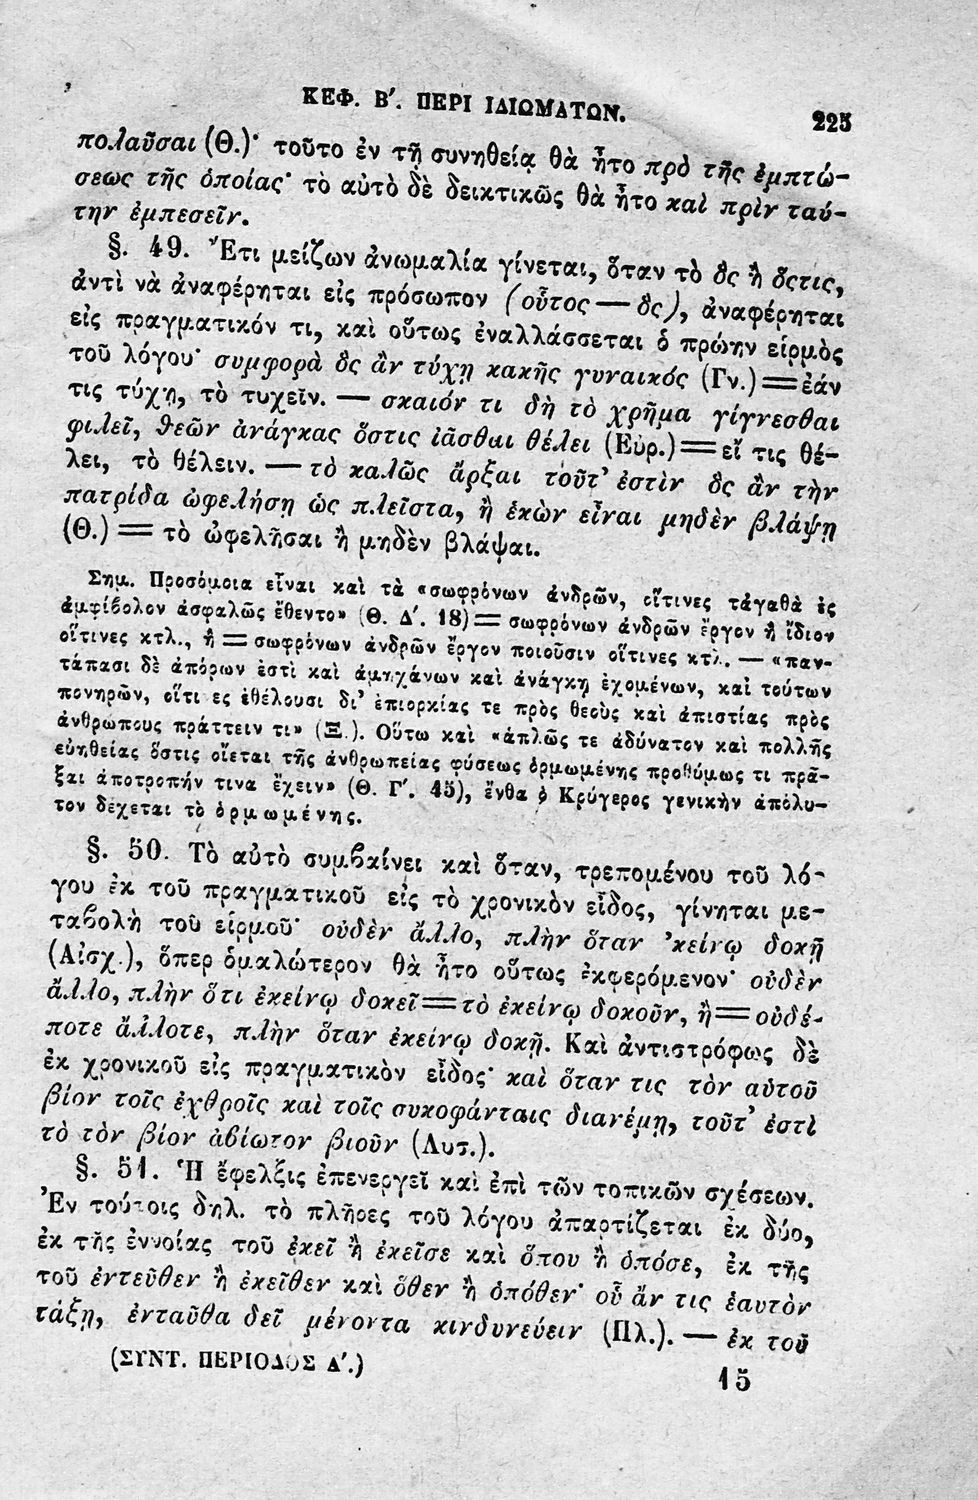 ΚΕΦ. Β΄. ΠΕΡΙ ΙΔΙΩΜΑΤΩΝ. 225
πολαῦσαι (Θ.)· τοῦτο ἐν τῇ συνηθείᾳ θὰ ἦτο πρὸ τῆς ἐμπτώ-
σεως τῆς ὁποίας· τὸ αὐτὸ δὲ δεικτικῶς θὰ ἦτο καὶ πρὶν ταύ-
την ἐμπεσεῖν.
§. 49. Ἔτι μείζων ἀνωμαλία γίνεται, ὅταν τὸ ὃς ἢ ὅςτις,
ἀντὶ νὰ ἀναφέρηται εἰς πρόσωπον (οὗτος — ὃς), ἀναφέρηται
εἰς πραγματικόν τι, καὶ οὕτως ἐναλλάσσεται ὁ πρώην εἱρμὸς
τοῦ λόγου· συμφορὰ ὃς ἂν τύχῃ κακῆς γυναικός (Γν.) = ἐάν
τις τύχῃ, τὸ τυχεῖν. — σκαιόν τι δὴ τὸ χρῆμα γίγνεσθαι
φιλεῖ, θεῶν ἀνάγκας ὅστις ἰᾶσθαι θέλει (Εὐρ.) = εἴ τις θέ-
λει, τὸ θέλειν. — τὸ καλῶς ἄρξαι τοῦτ' ἐστὶν ὃς ἂν τὴν
πατρίδα ὠφελήσῃ ὡς πλεῖστα, ἢ ἑκὼν εἶναι μηδὲν βλάψῃ
(Θ.) = τὸ ὠφελῆσαι ἢ μηδὲν βλάψαι.
Σημ. Προσόμοια εἶναι καὶ τὰ «σωφρόνων ἀνδρῶν, οἵτινες τἀγαθὰ ἐς
ἀμφίβολον ἀσφαλῶς ἔθεντο» (Θ. Δ΄. 18) = σωφρόνων ἀνδρῶν ἔργον ἢ ἴδιον
οἵτινες κτλ., ἢ = σωφρόνων ἀνδρῶν ἔργον ποιοῦσιν οἵτινες κτλ. — «παν-
τάπασι δὲ ἀπόρων ἐστὶ καὶ ἀμηχάνων καὶ ἀνάγκῃ ἐχομένων, καὶ τούτων
πονηρῶν, οἵτινες ἐθέλουσι δι' ἐπιορκίας τε πρὸς θεοὺς καὶ ἀπιστίας πρὸς
ἀνθρώπους πράττειν τι» (Ξ.). Οὕτω καὶ «ἁπλῶς τε ἀδύνατον καὶ πολλῆς
εὐηθείας ὅστις οἴεται τῆς ἀνθρωπείας φύσεως ὁρμωμένης προθύμως τι πρᾶ-
ξαι ἀποτροπήν τινα ἔχειν» (Θ. Γ΄. 45), ἔνθα ὁ Κρύγερος γενικὴν ἀπόλυ-
τον δέχεται τὸ ὁρμωμένης.
§. 50. Τὸ αὐτὸ συμβαίνει καὶ ὅταν, τρεπομένου τοῦ λό-
γου ἐκ τοῦ πραγματικοῦ εἰς τὸ χρονικὸν εἶδος, γίνηται με-
ταβολὴ τοῦ εἱρμοῦ· οὐδὲν ἄλλο, πλὴν ὅταν 'κείνῳ δοκῇ
(Αἰσχ.), ὅπερ ὁμαλώτερον θὰ ἦτο οὕτως ἐκφερόμενον· οὐδὲν
ἄλλο, πλὴν ὅτι ἐκείνῳ δοκεῖ = τὸ ἐκείνῳ δοκοῦν, ἢ = οὐδέ-
ποτε ἄλλοτε, πλὴν ὅταν ἐκείνῳ δοκῇ. Καὶ ἀντιστρόφως δὲ
ἐκ χρονικοῦ εἰς πραγματικὸν εἶδος· καὶ ὅταν τις τὸν αὑτοῦ
βίον τοῖς ἐχθροῖς καὶ τοῖς συκοφάνταις διανέμῃ, τοῦτ' ἐστὶ
τὸ τὸν βίον ἀβίωτον βιοῦν (Λυσ.).
§. 51. Ἡ ἔφελξις ἐπενεργεῖ καὶ ἐπὶ τῶν τοπικῶν σχέσεων.
Ἐν τούτοις δηλ. τὸ πλῆρες τοῦ λόγου ἀπαρτίζεται ἐκ δύο,
ἐκ τῆς ἐννοίας τοῦ ἐκεῖ ἢ ἐκεῖσε καὶ ὅπου ἢ ὁπόσε, ἐκ τῆς
τοῦ ἐντεῦθεν ἢ ἐκεῖθεν καὶ ὅθεν ἢ ὁπόθεν· οὗ ἄν τις ἑαυτὸν
τάξῃ, ἐνταῦθα δεῖ μένοντα κινδυνεύειν (Πλ.). — ἐκ τοῦ
(ΣΥΝΤ. ΠΕΡΙΟΔΟΣ Δ΄.)
15